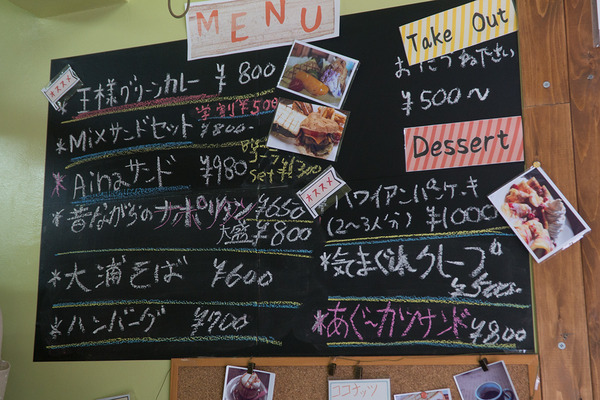 MENU
Take Out
おたづね下さい
¥500〜
オススメ
*王様グリーンカレー ¥800
学割¥500
*Mixサンドセット ¥800-
*Ainaサンド ¥980
Set ¥1300
*昔ながらのナポリタン ¥650
大盛¥800
*大浦そば ¥600
*ハンバーグ ¥700
Dessert
オススメ
*ハワイアンパンケーキ
(2〜3人分) ¥1000
*気まぐれクレープ
¥500
*あぐ〜カツサンド ¥800
ココナッツ